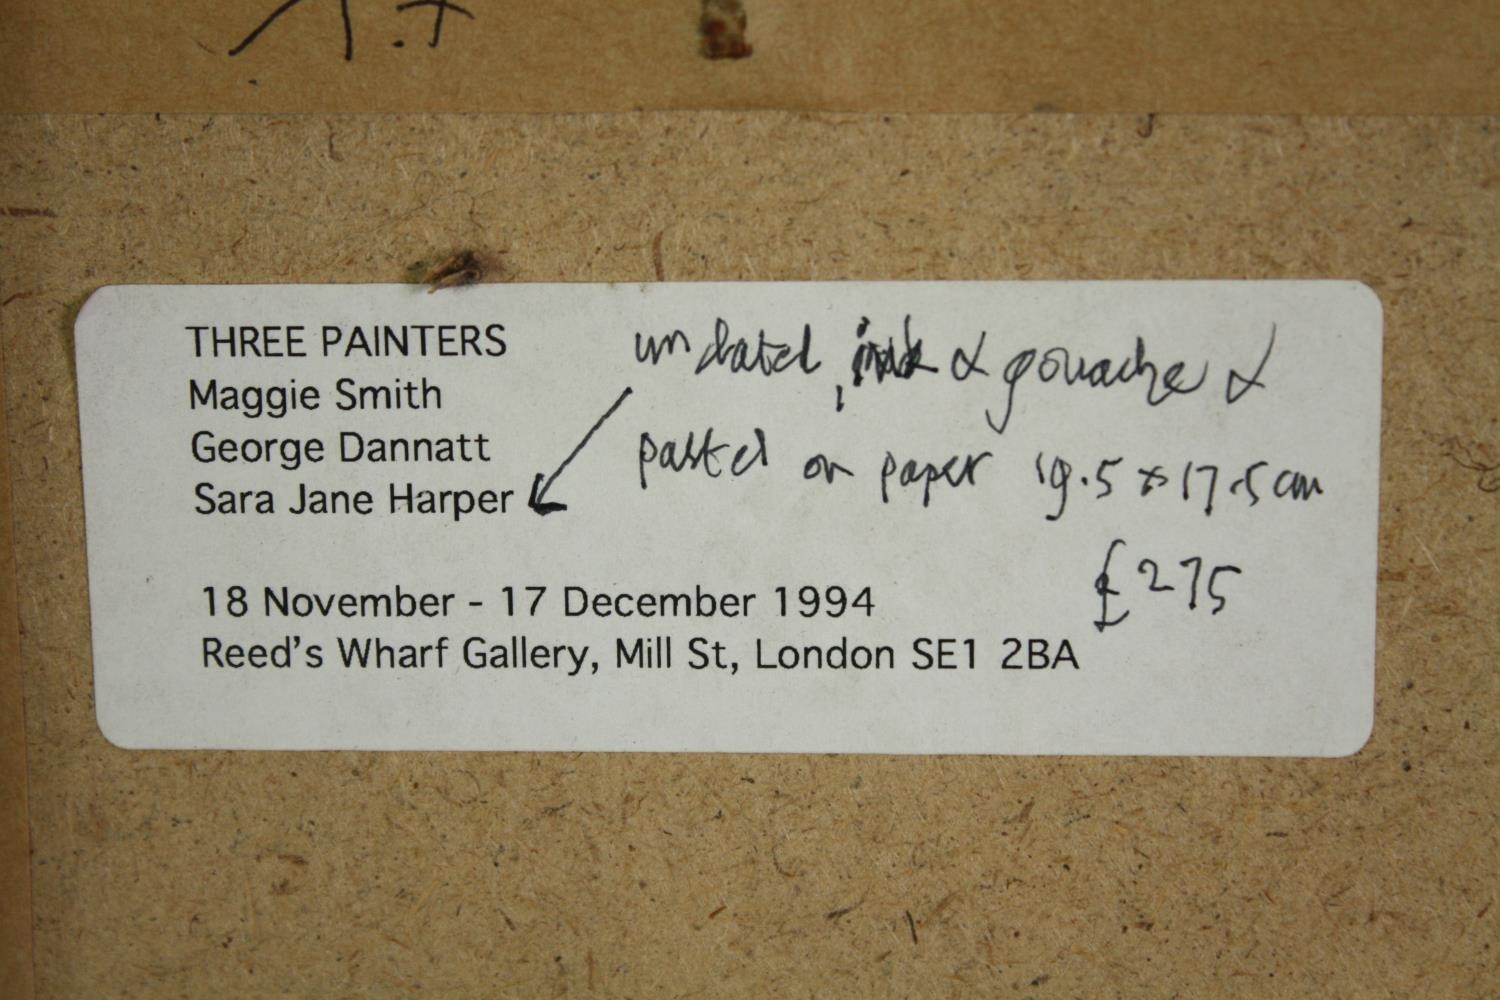 THREE PAINTERS
Maggie Smith
George Dannatt
Sara Jane Harper
undated, ink & gouache &
pastel on paper 19.5 x 17.5 cm
£275
18 November - 17 December 1994
Reed's Wharf Gallery, Mill St, London SE1 2BA